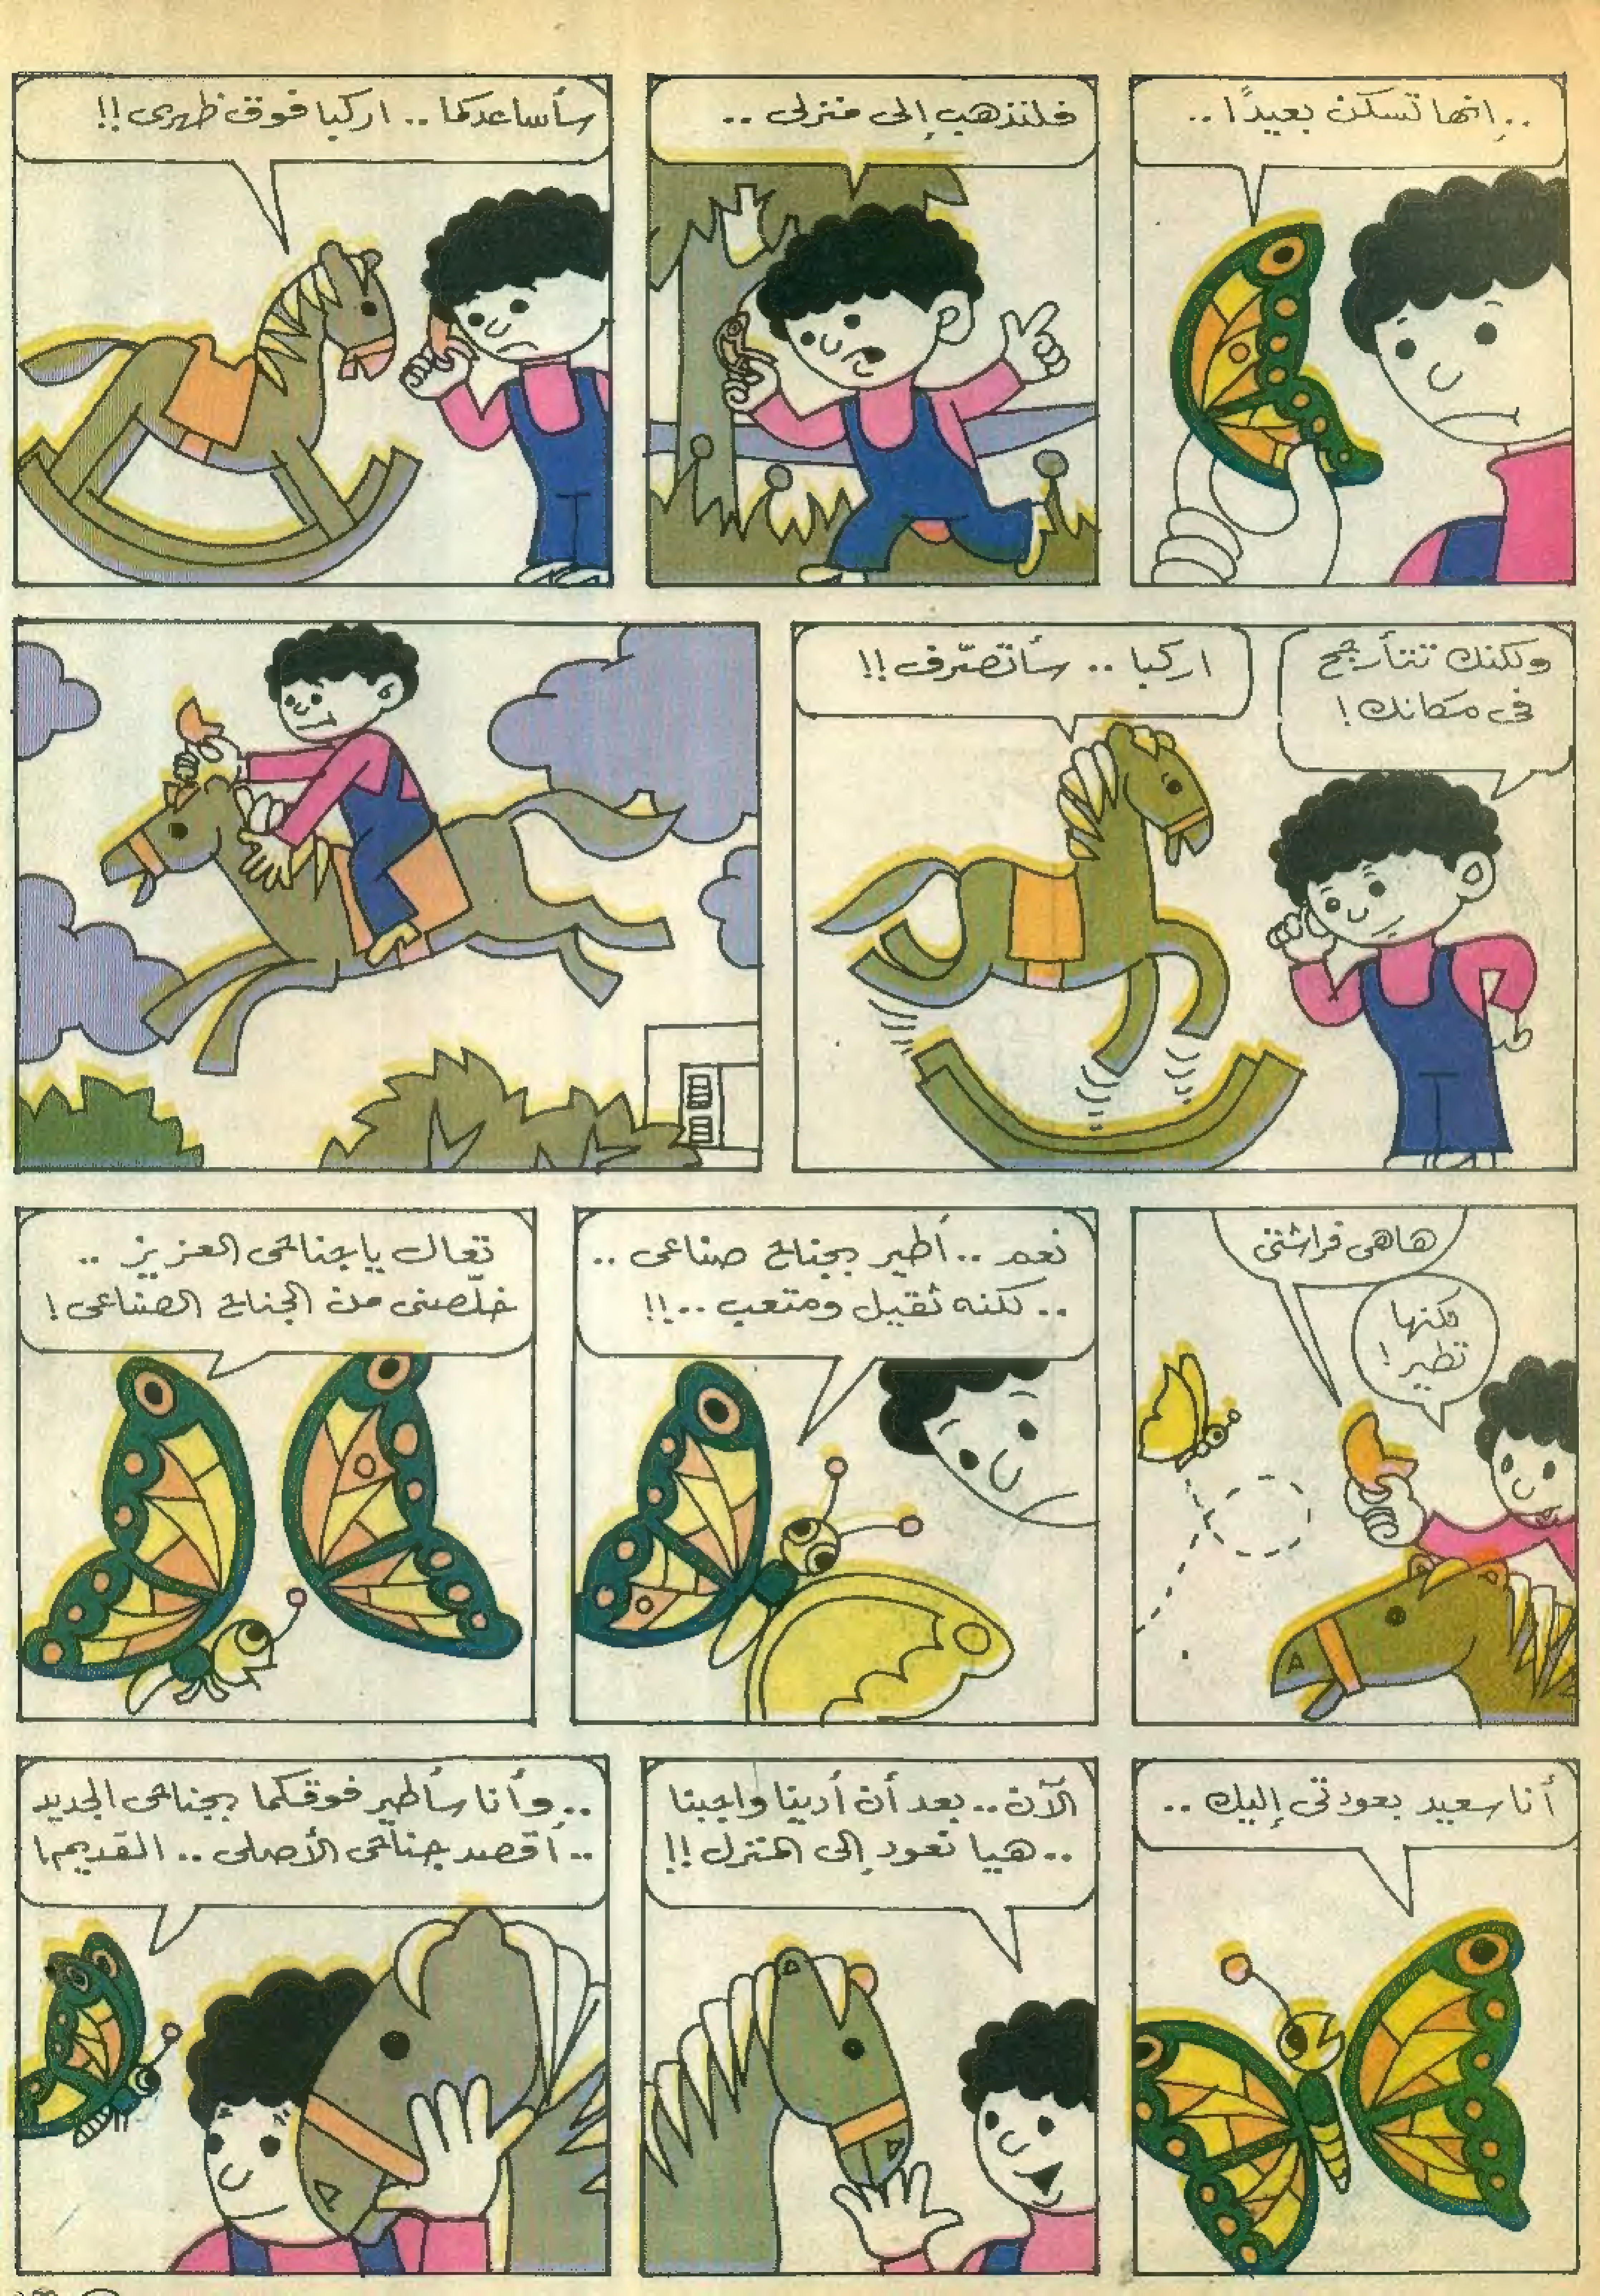 ..إنها تسكن بعيدًا..
فلنذهب إلى منزلى ..
سأساعدكما .. اركبا فوق ظهرى !!
ولكنك تتأرجح
فى مكانك !
اركبا .. سأتصرّف !!
هاهى فراشتى
لكنها
تطير !
نعم .. أطير بجناح صناعى ..
.. لكنه ثقيل ومتعب ..!!
تعال ياجناحى العزيز ..
خلّصنى من الجناح الصناعى !
أنا سعيد بعودتى إليك ..
الآن .. بعد أن أدينا واجبنا
.. هيا نعود إلى المنزل !!
.. وأنا سأطير فوقكما بجناحى الجديد
.. أقصد جناحى الأصلى .. القديم !